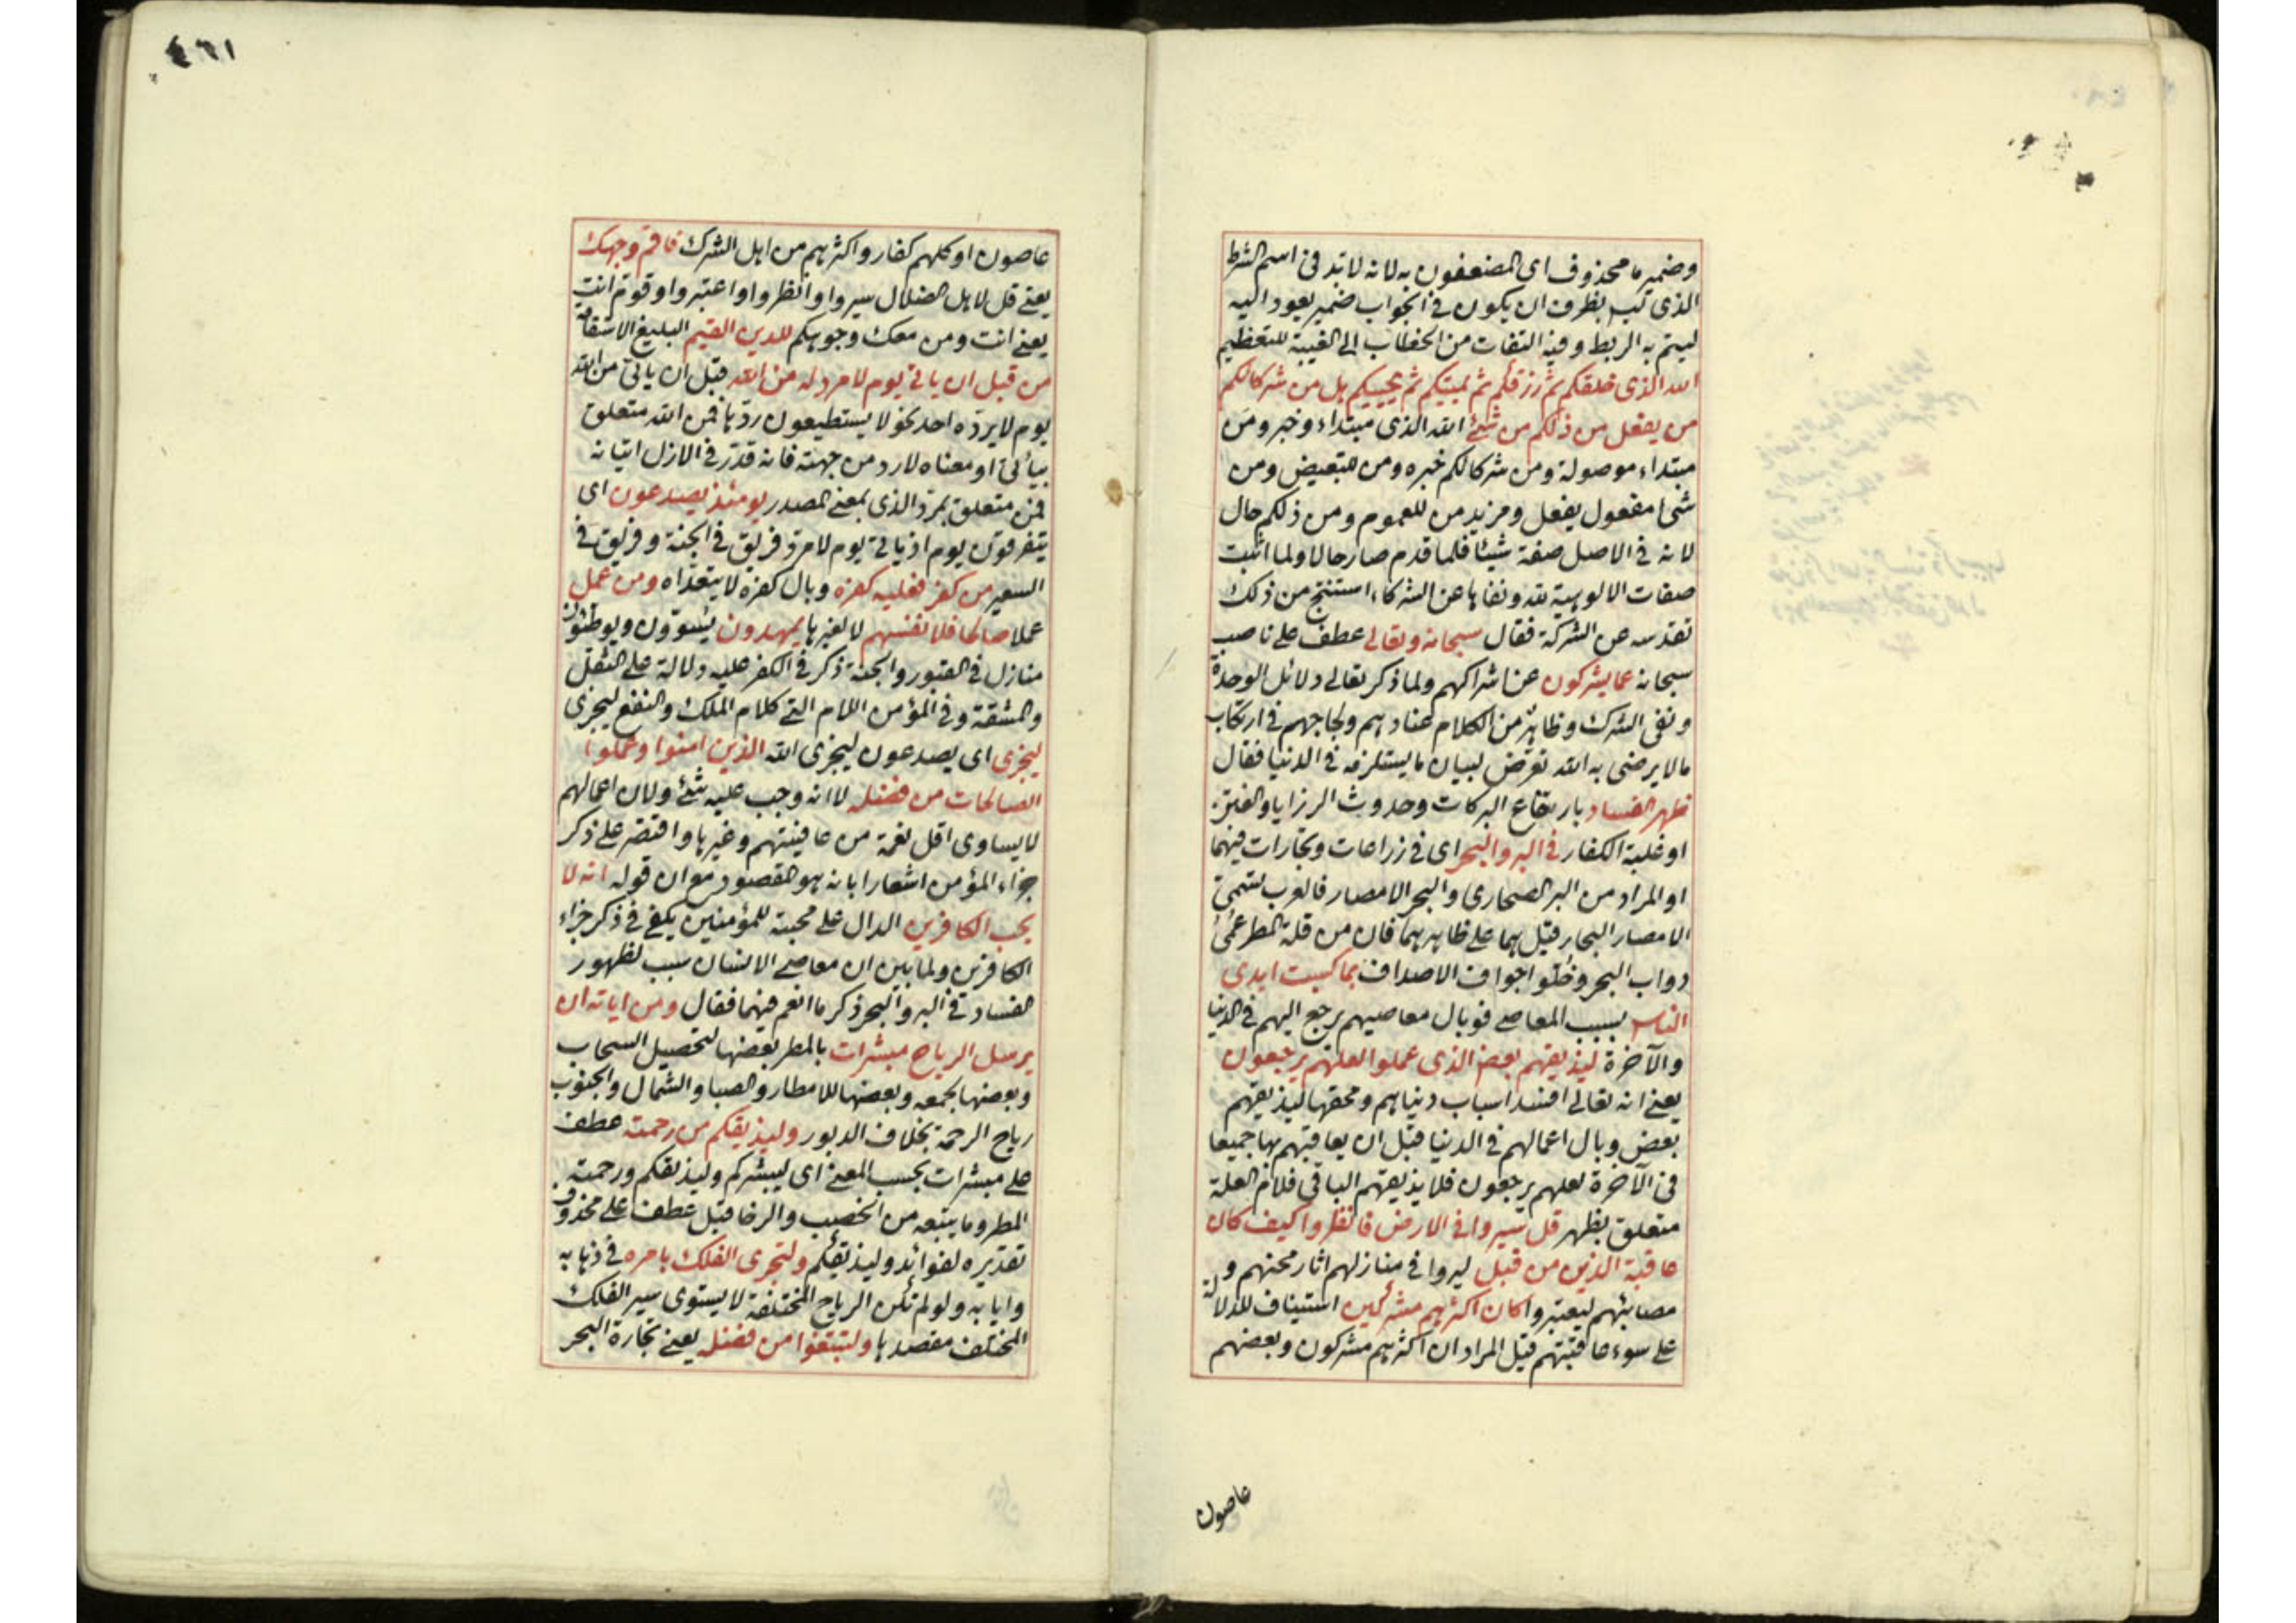 وضمير ما محذوف اى المضعفون به لانه لابد فى اسم الشرط
الذى ليس بظرف ان يكون فى الجواب ضمير يعود اليه
ليتم به الربط وفيه التفات من الخطاب الى الغيبة للتعظيم
الله الذى خلقكم ثم رزقكم ثم يميتكم ثم يحييكم هل من شركائكم
من يفعل من ذلكم من شئ الله الذى مبتداء وخبر ومن
مبتداء موصولة ومن شركائكم خبره ومن للتبعيض ومن
شئ مفعول يفعل ومزيد من للعموم ومن ذلكم حال
لانه فى الاصل صفة شيئا فلما قدم صار حالا ولما اثبت
صفات الالوهية له ونفاها عن الشركاء استنتج من ذلك
تقدسه عن الشركة فقال سبحانه وتعالى عطف على ناصب
سبحانه عما يشركون عن اشراكهم ولما ذكر تعالى دلائل الوحدة
ونفى الشرك وظاهر من الكلام عنادهم ولجاجهم فى ارتكاب
مالا يرضى به الله تعرض لبيان ما يستلزمه فى الدنيا فقال
ظهر الفساد بارتفاع البركات وحدوث الرزايا والفتن
او غلبة الكفار فى البر والبحر اى فى زراعات وتجارات فيهما
او المراد من البر الصحارى والبحر الامصار فالعرب تسمى
الامصار البحار قيل هما على ظاهرهما فان من قلة المطر عمى
دواب البحر وخلو اجواف الاصداف بما كسبت ايدى
الناس بسبب المعاصى فوبال معاصيهم يرجع اليهم فى الدنيا
والآخرة ليذيقهم بعض الذى عملوا لعلهم يرجعون
يعنى انه تعالى افسد اسباب دنياهم ومحقها ليذيقهم
بعض وبال اعمالهم فى الدنيا قبل ان يعاقبهم بها جميعا
فى الآخرة لعلهم يرجعون فلا يذيقهم الباقى فلام العلة
متعلق بظهر قل سيروا فى الارض فانظروا كيف كان
عاقبة الذين من قبل ليروا فى منازلهم اثار محنهم و
مصائبهم ليعتبروا كان اكثرهم مشركين استيناف للدلالة
على سوء عاقبتهم قيل المراد ان اكثرهم مشركون وبعضهم
عاصون
٤٦١
عاصون او كلهم كفار واكثرهم من اهل الشرك فاقم وجهك
يعنى قل لاهل الضلال سيروا وانظروا واعتبروا وقوم انت
يعنى انت ومن معك وجوهكم للدين القيم البليغ الاستقامة
من قبل ان ياتى يوم لا مرد له من الله قبل ان ياتى من الله
يوم لا يرده احد نحو لا يستطيعون ردها فمن الله متعلق
بياتى او معناه لا رد من جهته فانه قدر فى الازل اتيانه
فمن متعلق بمرد الذى بمعنى المصدر يومئذ يصدعون اى
يتفرقون يوم اذ ياتى يوم لا مرد فريق فى الجنة وفريق فى
السعير من كفر فعليه كفره وبال كفره لا يتعداه ومن عمل
عملا صالحا فلانفسهم لا لغيرها يمهدون يسوون ويوطئون
منازل فى القبور والجنة ذكر فى الكفر عليه دلالة على الثقل
والمشقة وفى المؤمن اللام التى كلام الملك والنفع ليجزى
ليجزى اى يصدعون ليجزى الله الذين امنوا وعملوا
الصالحات من فضله لا انه وجب عليه شئ ولان اعمالهم
لا يساوى اقل نعمة من عافيتهم وغيرها واقتصر على ذكر
جزاء المؤمن اشعارا بانه هو المقصود مع ان قوله انه لا
يحب الكافرين الدال على محبته للمؤمنين يكفى فى ذكر جزاء
الكافرين ولما بين ان معاصى الانسان سبب لظهور
الفساد فى البر والبحر ذكر ما انعم فيهما فقال ومن اياته ان
يرسل الرياح مبشرات بالمطر بعضها لتحصيل السحاب
وبعضها لجمعه وبعضها للامطار والصبا والشمال والجنوب
رياح الرحمة بخلاف الدبور وليذيقكم من رحمته عطف
على مبشرات بحسب المعنى اى ليبشركم وليذيقكم ورحمته
المطر وما يتبعه من الخصب والرخا قيل عطف على محذوف
تقديره لفوائد وليذيقكم ولتجرى الفلك بامره فى ذهابه
وايابه ولو لم تكن الرياح المختلفة لا يستوى سير الفلك
المختلف مقصدها ولتبتغوا من فضله يعنى تجارة البحر